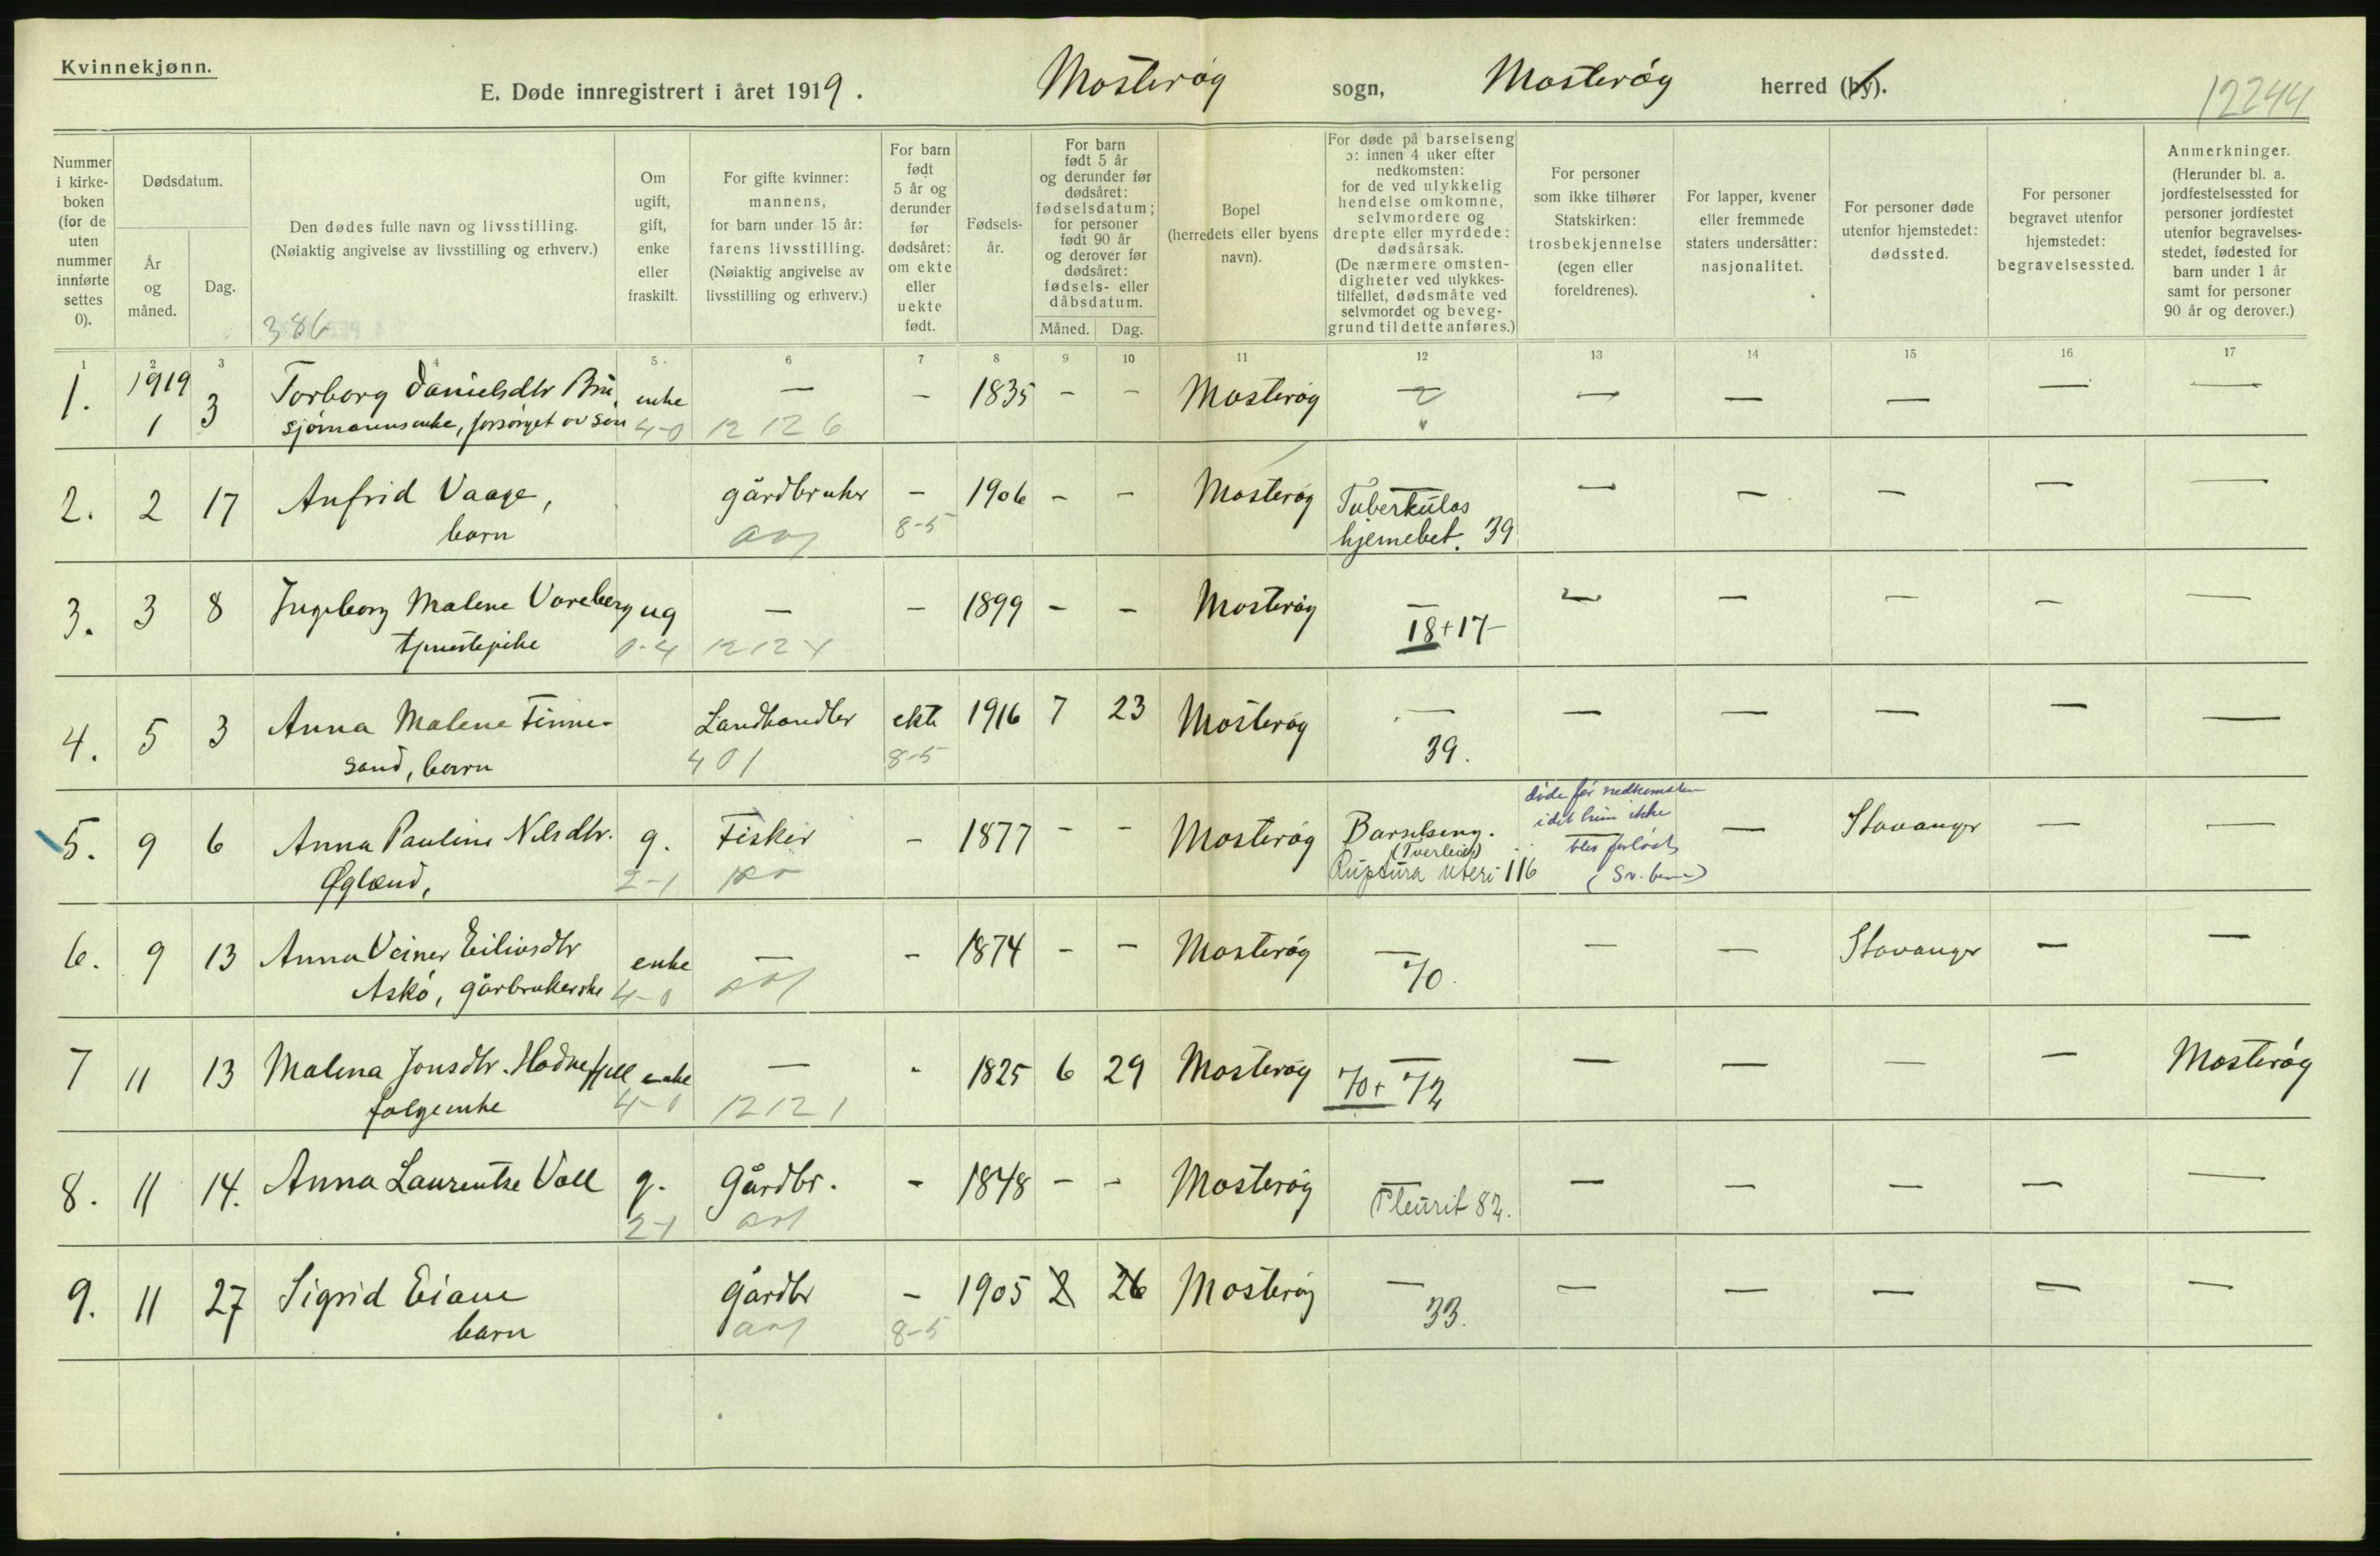 Kvinnekjønn.
E. Døde innregistrert i året 1919. Mosterøy sogn, Mosterøy herred (by).
12244
Nummer i kirke- boken (for de uten nummer innførte settes 0).
Dødsdatum.
År og måned.
Dag.
Den dødes fulle navn og livsstilling.
(Nøiaktig angivelse av livsstilling og erhverv.)
386
Om ugift, gift, enke eller fraskilt.
For gifte kvinner: mannens, for barn under 15 år: farens livsstilling. (Nøiaktig angivelse av livsstilling og erhverv.)
For barn født 5 år og derunder før dødsåret: om ekte eller uekte født.
Fødsels- år.
For barn født 5 år og derunder før dødsåret: fødselsdatum; for personer født 90 år og derover før dødsåret: fødsels- eller dåbsdatum.
Måned. Dag.
Bopel (herredets eller byens navn).
For døde på barselseng ɔ: innen 4 uker efter nedkomsten: for de ved ulykkelig hendelse omkomne, selvmordere og drepte eller myrdede: dødsårsak. (De nærmere omsten- digheter ved ulykkes- tilfellet, dødsmåte ved selvmordet og beveg- grund til dette anføres.)
For personer som ikke tilhører Statskirken: trosbekjennelse (egen eller foreldrenes).
For lapper, kvener eller fremmede staters undersåtter: nasjonalitet.
For personer døde utenfor hjemstedet: dødssted.
For personer begravet utenfor hjemstedet: begravelsessted.
Anmerkninger. (Herunder bl. a. jordfestelsessted for personer jordfestet utenfor begravelses- stedet, fødested for barn under 1 år samt for personer 90 år og derover.)
1 2 3 4 5 6 7 8 9 10 11 12 13 14 15 16 17
1. 1919 1 3 Torborg Danielsdtr Bru, enke — - 1835 - - Mosterøy — — — — — —
sjømannsenke, forsørget av søn 4-0 12 12 6
2. 2 17 Anfrid Vaage, gårdbruker - 1906 - - Mosterøy Tuberkuløs — — — — —
barn 8-5 hjernebet. 39
3. 3 8 Ingeborg Malene Voreberg ug — - 1899 - - Mosterøy — — — — — —
tjenestepike 0-4 12 12 4 18+17-
4. 5 3 Anna Malene Finne- Landhandler ekte 1916 7 23 Mosterøy — — — — — —
sand, barn 401 8-5 39.
5. 9 6 Anna Pauline Nilsdtr. g. Fisker - 1877 - - Mosterøy Barselseng. døde før nedkomsten — Stavanger — —
Øgland, 2-1 (Tverleie) idet hun ikke
Ruptura uteri 116 blev forløst
6. 9 13 Anna Veiner Eiliusdtr enke — - 1874 - - Mosterøy — — — Stavanger — —
Askø, gårbrukerske 4-0 70.
7 11 13 Malena Jonsdtr. Hodnefjell enke — - 1825 6 29 Mosterøy — — — — — Mosterøy
folgeenke 4-0 12 12 1 70+72
8. 11 14. Anna Laurentse Voll g. Gårdbr. - 1848 - - Mosterøy — — — — — —
2-1 Pleurit 82.
9. 11 27 Sigrid Eiane Gårdbr - 1905 2 26 Mosterøy — — — — — —
barn 8-5 33.